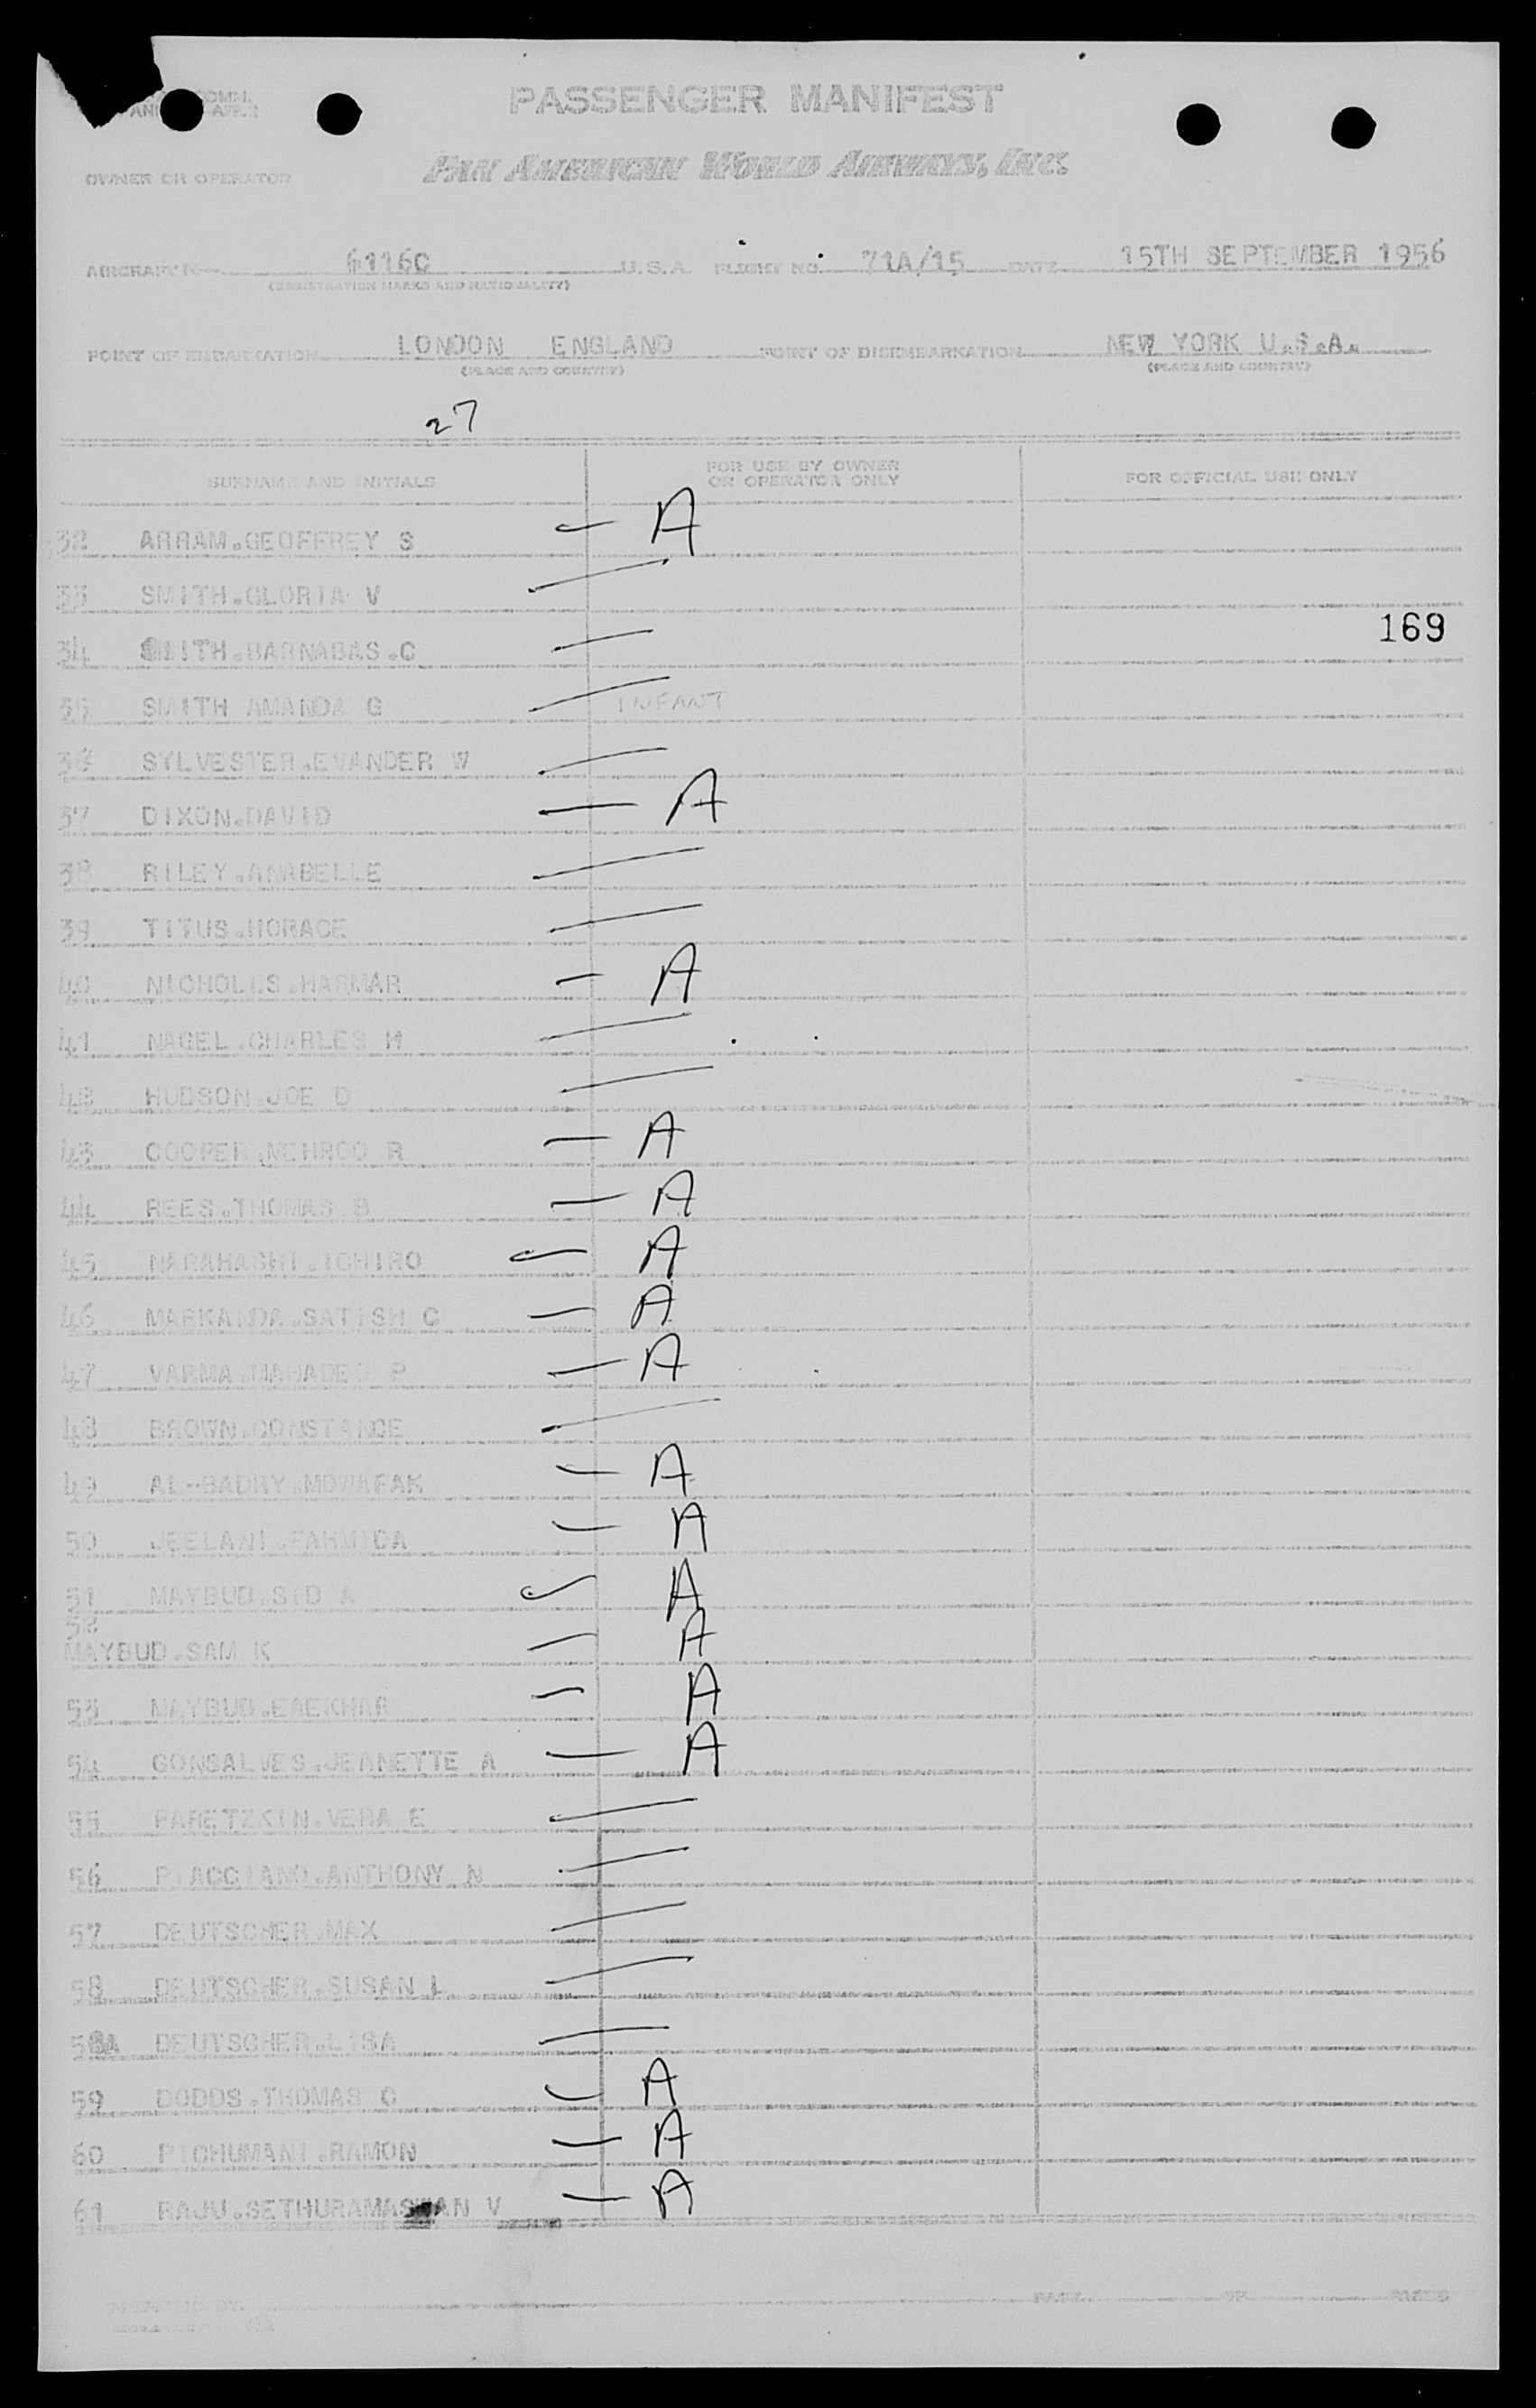 COMM.
PASSENGER MANIFEST
PAN AMERICAN WORLD AIRWAYS, INC.
OWNER OR OPERATOR
AIRCRAFT 6116C U.S.A. FLIGHT NO. 71A/15 DATE 15TH SEPTEMBER 1956
(REGISTRATION MARKS AND NATIONALITY)
POINT OF EMBARKATION LONDON ENGLAND POINT OF DISEMBARKATION NEW YORK U.S.A.
(PLACE AND COUNTRY) (PLACE AND COUNTRY)
27
SURNAME AND INITIALS FOR USE BY OWNER OR OPERATOR ONLY FOR OFFICIAL USE ONLY
32 ARRAM.GEOFFREY S — A
33 SMITH.GLORIA V
34 SMITH.BARNABAS.C 169
35 SMITH AMANDA G INFANT
36 SYLVESTER.EVANDER W
37 DIXON.DAVID — A
38 RILEY.ANABELLE
39 TITUS.HORACE
40 NICHOLLS.HARMAR — A
41 NAGEL.CHARLES H
42 HUDSON.JOE D
43 COOPER.NEHROO R — A
44 REES.THOMAS B — A
45 NARAHASHI.ICHIRO — A
46 MARKANDA.SATISH C — A
47 VARMA.MAHADEO P — A
48 BROWN.CONSTANCE
49 AL-BADRY.MOWAFAK — A
50 JEELANI.FAHMIDA — A
51 MAYBUD.SID A A
52
MAYBUD.SAM K — A
53 MAYBUD. — A
54 GONSALVES.JEANETTE A — A
55 PARETZKIN.VERA E
56 PIACCIANO.ANTHONY N
57 DEUTSCHER.MAX
58 DEUTSCHER.SUSAN L
58A DEUTSCHER.LISA
59 DODDS.THOMAS C — A
60 PICHUMANI.RAMON — A
61 RAJU.SETHURAMASWAN V — A
PAGE OF PAGES